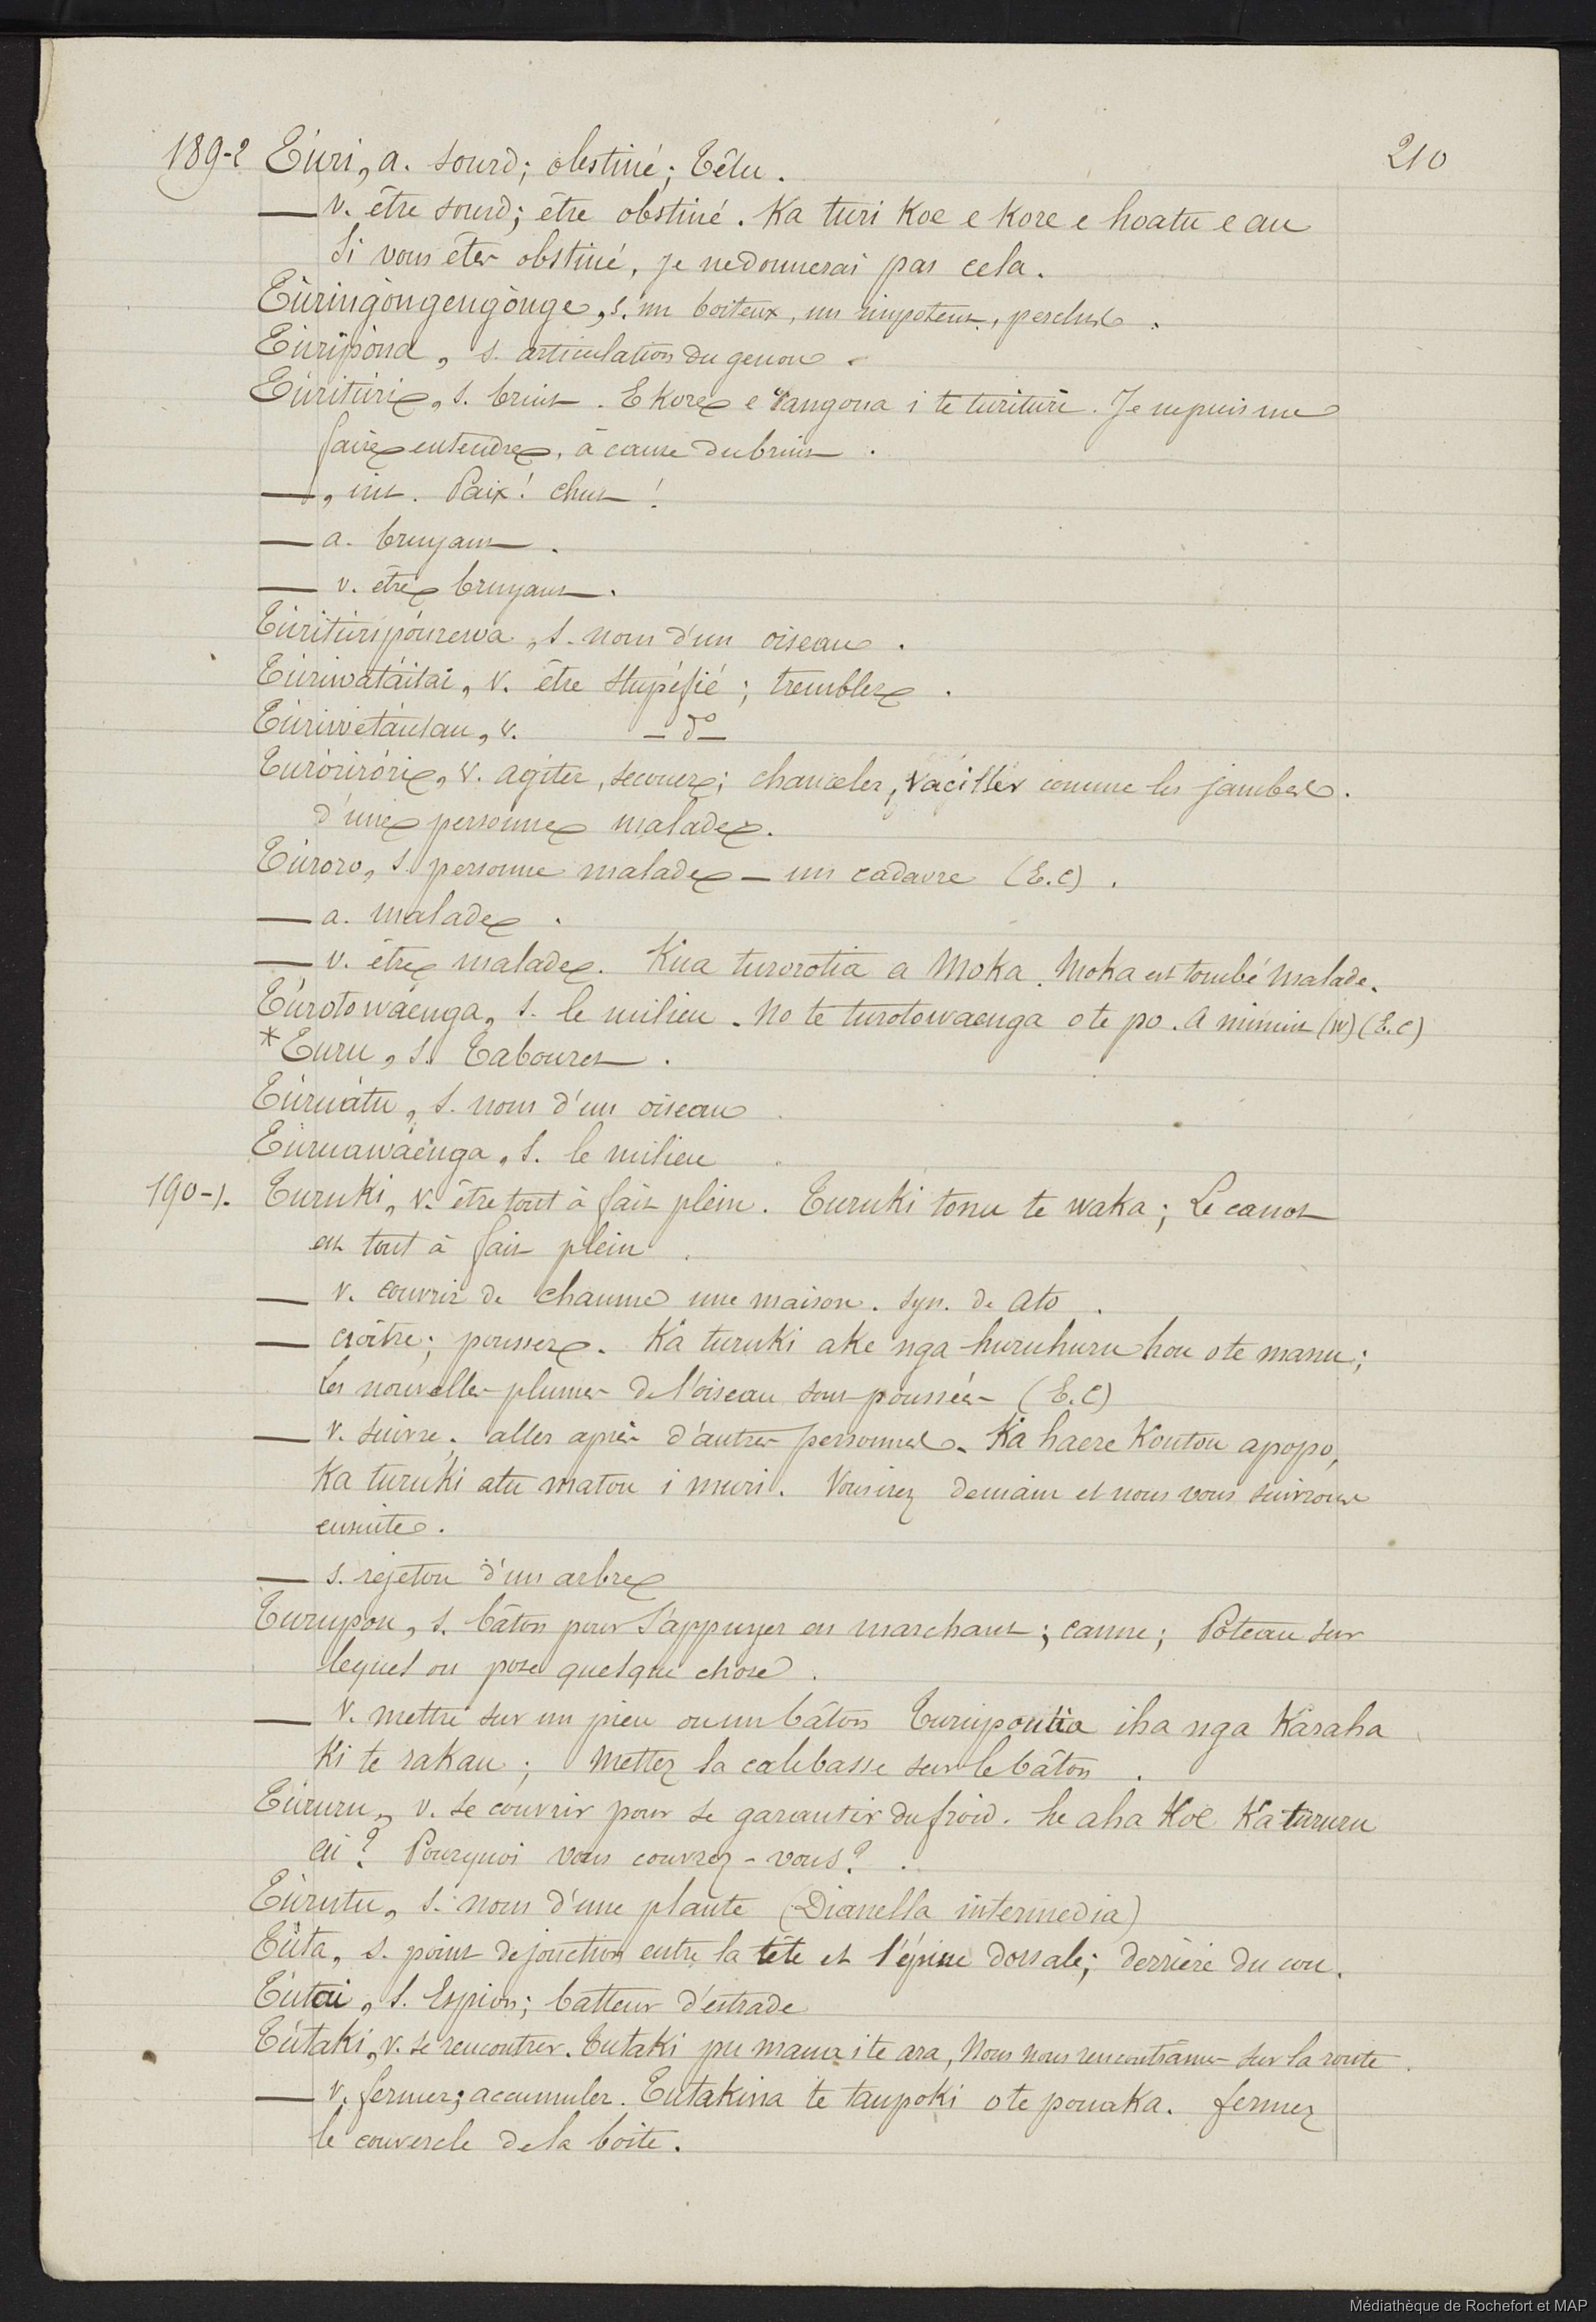 210
189-2 Túri, a. sourd; obstiné; têtu.
— v. être sourd; être obstiné. Ka turi koe e kore e hoatu e au
Si vous êtes obstiné, je ne donnerai pas cela.
Túringóngengónge, s. un boiteux, un impotent, perclus.
Túripóna, s. articulation du genou.
Túritúri, s. bruit. E kore e rangona i te turituri. Je ne puis me
faire entendre, à cause du bruit.
—, int. Paix! chut!
— a. bruyant.
— v. être bruyant.
Túritúripóurewa, s. nom d'un oiseau.
Túriwatáitai, v. être stupéfié; trembler.
Túriwetáutau, v. — do —
Turóriróri, v. agiter, secouer; chanceler, vaciller comme les jambes.
d'une personne malade.
Túroro, s. personne malade — un cadavre (E.C).
— a. malade.
— v. être malade. Kua turorotia a Moka. Moka est tombé malade.
Túrotowáenga, s. le milieu. No te turotowaenga o te po. A minuit (W) (E.C)
*Turu, s. Tabouret.
Túruátu, s. nom d'un oiseau
Túruawáenga, s. le milieu
190-1. Turuki, v. être tout à fait plein. Turuki tonu te waka; Le canot
est tout à fait plein.
— v. couvrir de chaume une maison. Syn. de Ato.
— croître; pousser. Ka turuki ake nga huruhuru hou o te manu;
Les nouvelles plumes de l'oiseau sont poussées (E.C)
— v. suivre; aller après d'autres personnes. Ka haere koutou apopo,
Ka turuki atu matou i muri. Vous irez demain et nous vous suivrons
ensuite.
— s. rejeton d'un arbre
Turupou, s. bâton pour s'appuyer en marchant; canne; Poteau sur
lequel on pose quelque chose.
— v. mettre sur un pieu ou un bâton Turupoutia iha nga Karaha
Ki te rakau; Mettez la calebasse sur le bâton.
Túruru, v. se couvrir pour se garantir du froid. he aha koe ka tururu
ai? Pourquoi vous couvrez-vous?.
Túrutu, s. nom d'une plante (Dianella intermedia)
Túta, s. point de jonction entre la tête et l'épine dorsale; derrière du cou.
Tútai, s. Espion; batteur d'estrade
Tútaki, v. se rencontrer. Tutaki pu maua i te ara, Nous nous rencontrâmes sur la route.
— v. fermer; accumuler. Tutakina te taupoki o te pouaka. fermez
le couvercle de la boîte.
Médiathèque de Rochefort et MAP